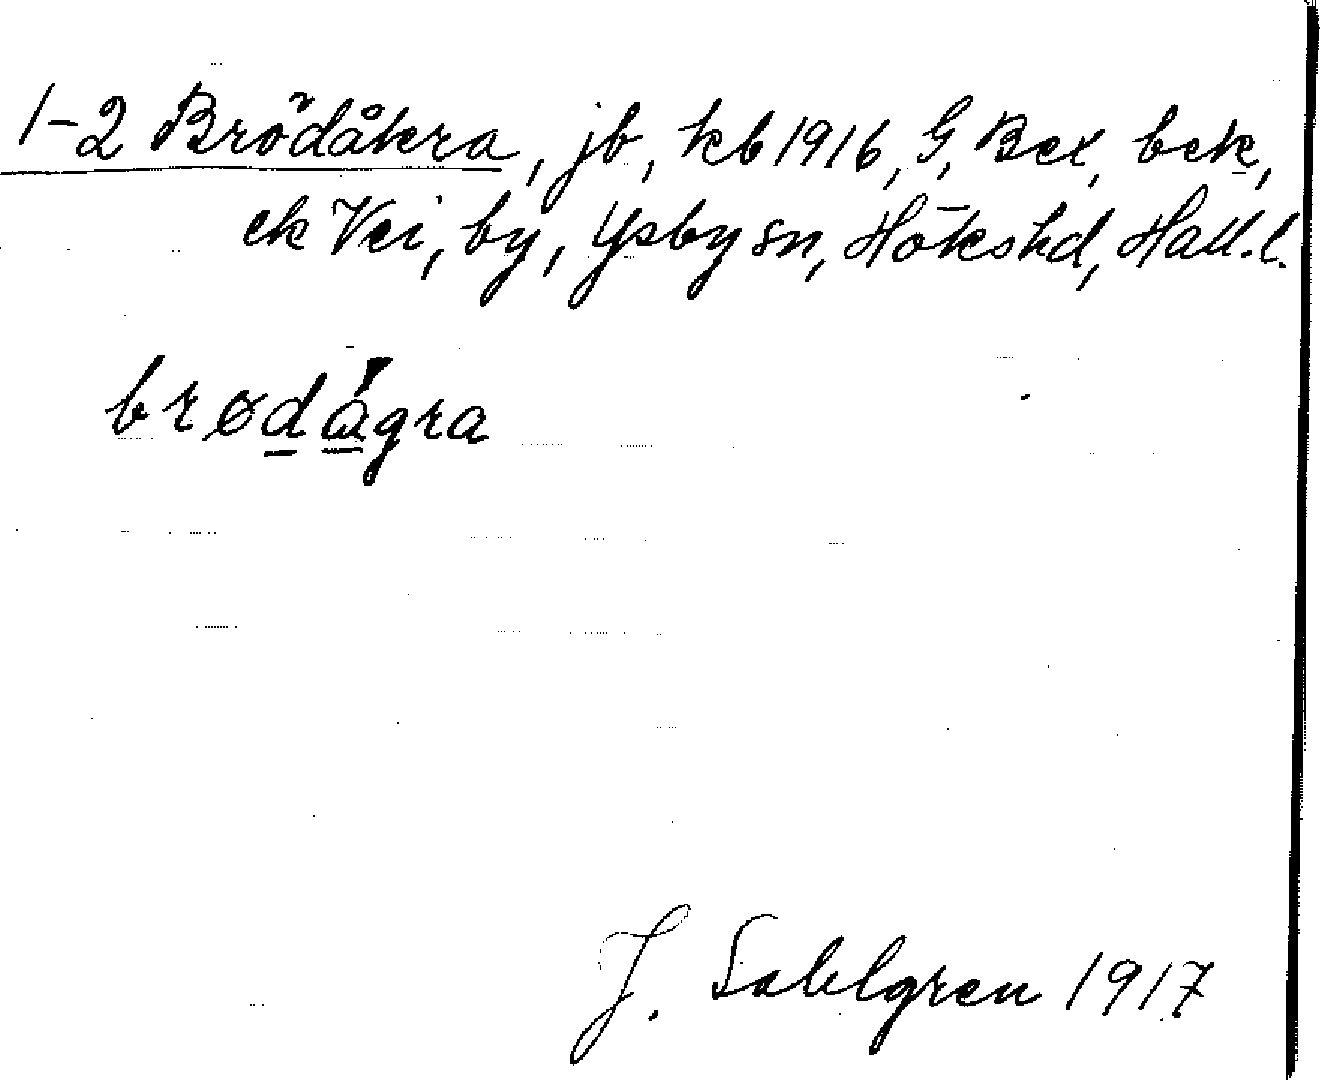 1-2 Brödåkra, jb, kb 1916, G, Bex, bek,
ek Vei, by, Ysby sn, Hökshd, Hall.l.
brødågra
J. Sahlgren 1917